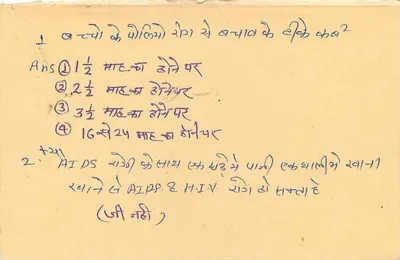 1 बच्चो के पोलियो रोग से बचाव के टीके कब?
Ans ① 1 1/2 माह का होने पर
② 2 1/2 माह का होने पर
③ 3 1/2 माह का होने पर
④ 16 से 24 माह का होने पर
2. क्या AIDS रोगी के साथ एक घड़े मे पानी एक थाली मे खाना
खाने से AIDS & H.I.V रोग हो सकता है
(जी नही)